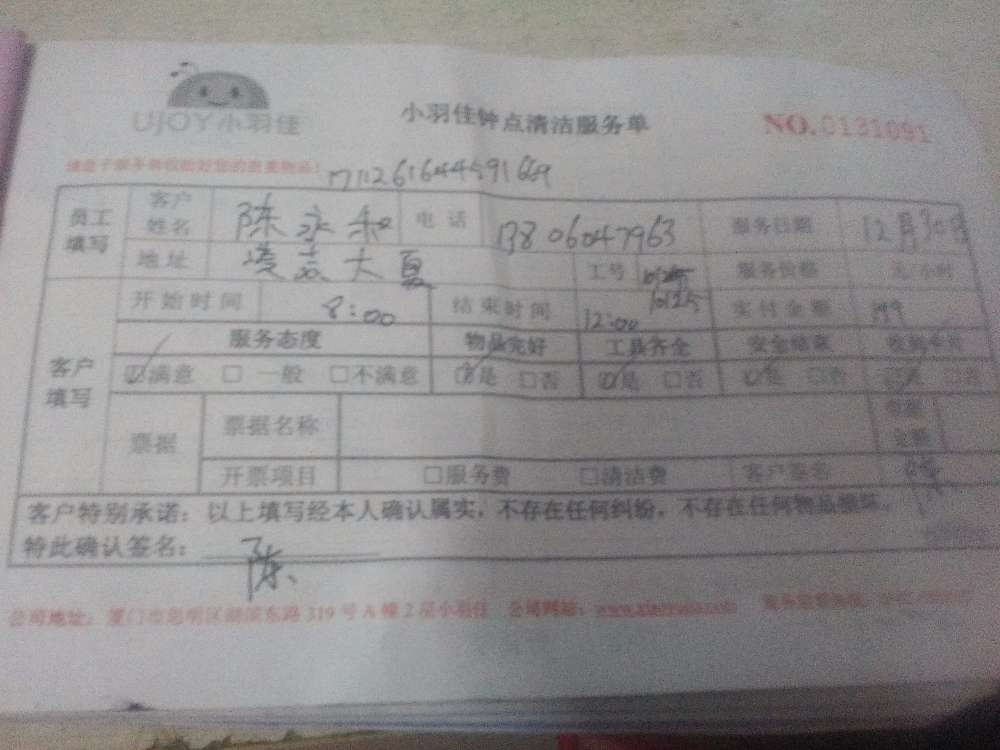 UJOY小羽佳
小羽佳钟点清洁服务单
NO.0131091
请您于服务前收拾好您的贵重物品!
员工填写 客户姓名 陈永和 电话 13806047963 服务日期 12月30日
地址 大夏 工号 服务价格 元/小时
客户填写 开始时间 8:00 结束时间 12:00 实付金额
服务态度 物品完好 工具齐全 安全结束
☑满意 □一般 □不满意 ☑是 □否 ☑是 □否 ☑是 □否 ☑是 □否
票据 票据名称
开票项目 □服务费 □清洁费 客户签名 陈
客户特别承诺:以上填写经本人确认属实,不存在任何纠纷,不存在任何物品损坏。
特此确认签名: 陈
公司地址:厦门市思明区湖滨东路319号A幢2层小羽佳 公司网站: